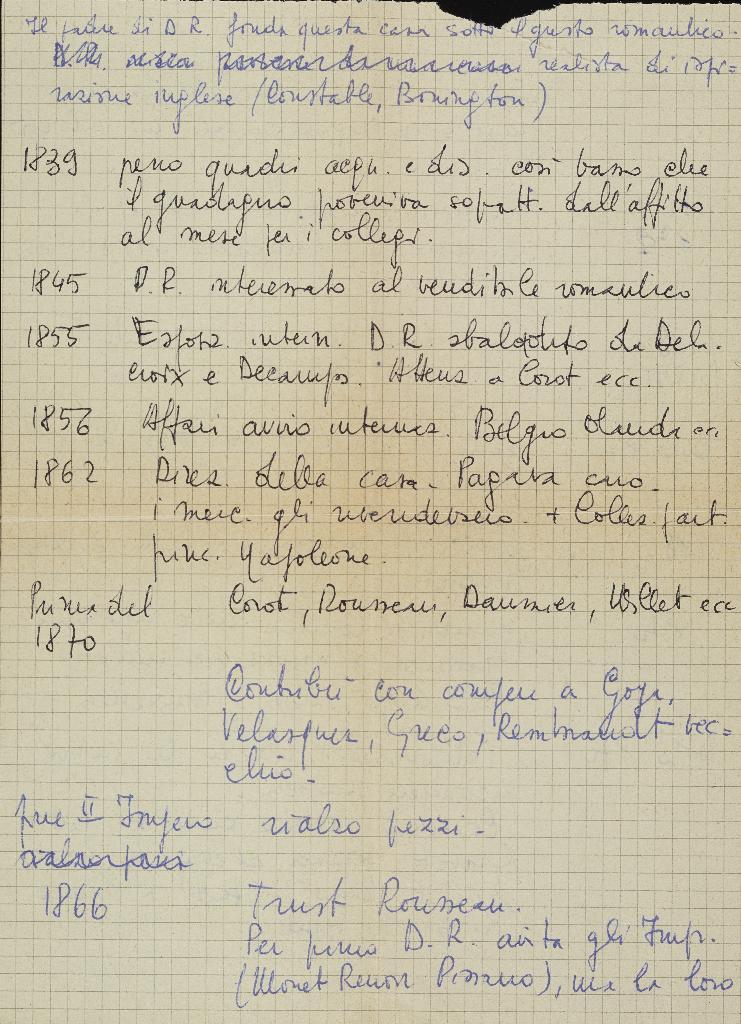 Il padre di D R. fonda questa casa sotto il gusto romantico.
realista di ispi=
razione inglese (Constable, Bonington)
1839 quadri acqu. e dis. così basso che
il guadagno proveniva sopratt. dall'affitto
al mese per i collegi.
1845 D.R. interessato al vendibile romantico
1855 Espos. intern. D.R. sbalordito da Dela.
croix e Decamps. Attenz. a Corot ecc.
1856 Affari avvio internaz. Belgio Olanda ecc.
1862 Direz. della casa. Pagava
i merc. gli + Collez. part.
princ. Napoleone.
Prima del Corot, Rousseau, Daumier, Millet ecc
1870
Contribuì con a Goya,
Velasquez, Greco, Rembrandt vec=
chio.
fine II Impero rialzo pezzi.
1866 Trust Rousseau.
Per primo D.R. aiuta gli Impr.
(Monet Renoir Pissarro), ma la loro